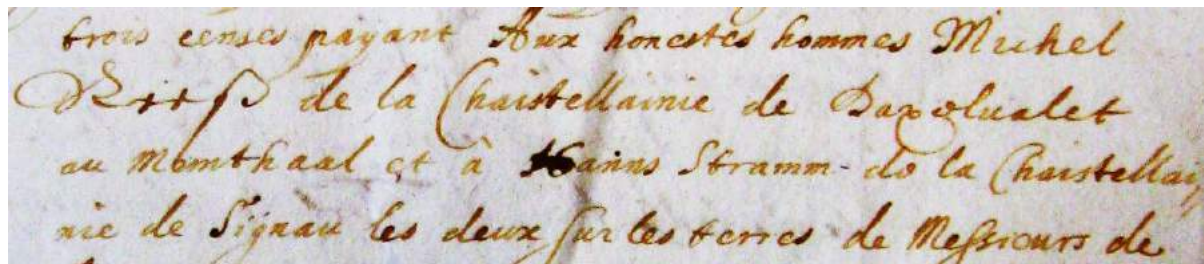 trois censes payant Aux honestes hommes Michel
de la Chaistellainie de
au Momthaal et à Hanns Stramm de la Chaistellay
nie de Signau les deux sur les terres de Messieurs de